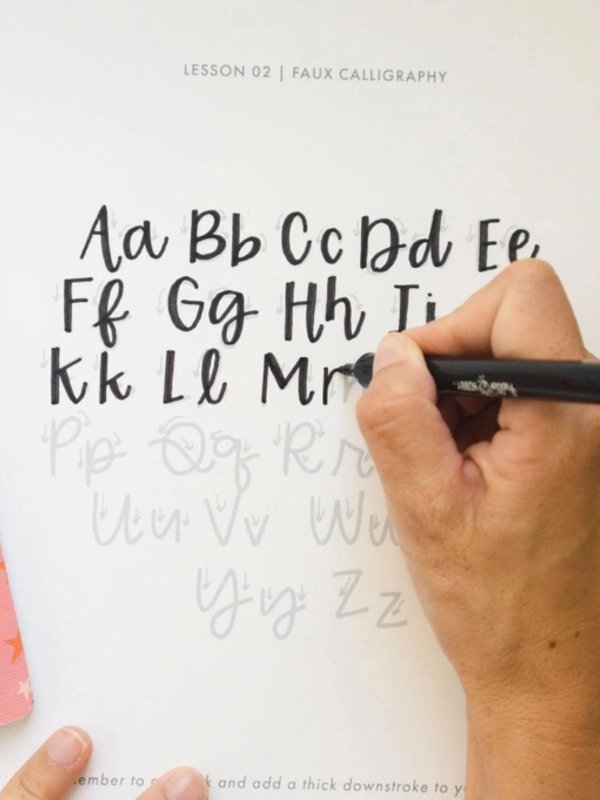 LESSON 02 | FAUX CALLIGRAPHY
Aa Bb Cc Dd Ee
Ff Gg Hh Ii
Kk Ll M
Pp Qq Rr
Uu Vv W
Yy Zz
and add a thick downstroke to